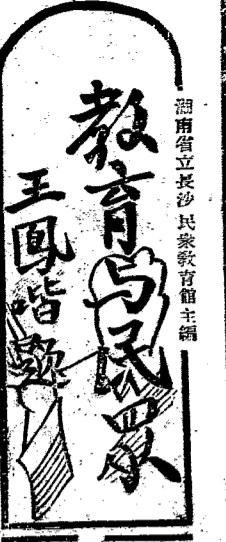 湖南省立長沙民衆教育館主編
教育与民眾
王鳳喈題